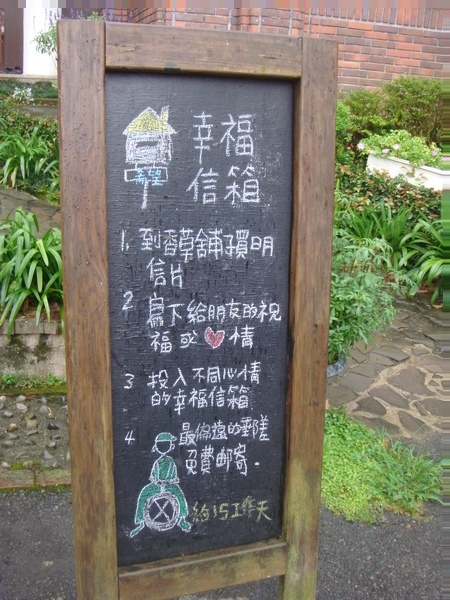 幸福
信箱
希望
1. 到香草舖子買明
信片
2 寫下給朋友的祝
福或心情
3 投入不同心情
的幸福信箱
4 最偏遠的郵差
免費邮寄.
約15工作天